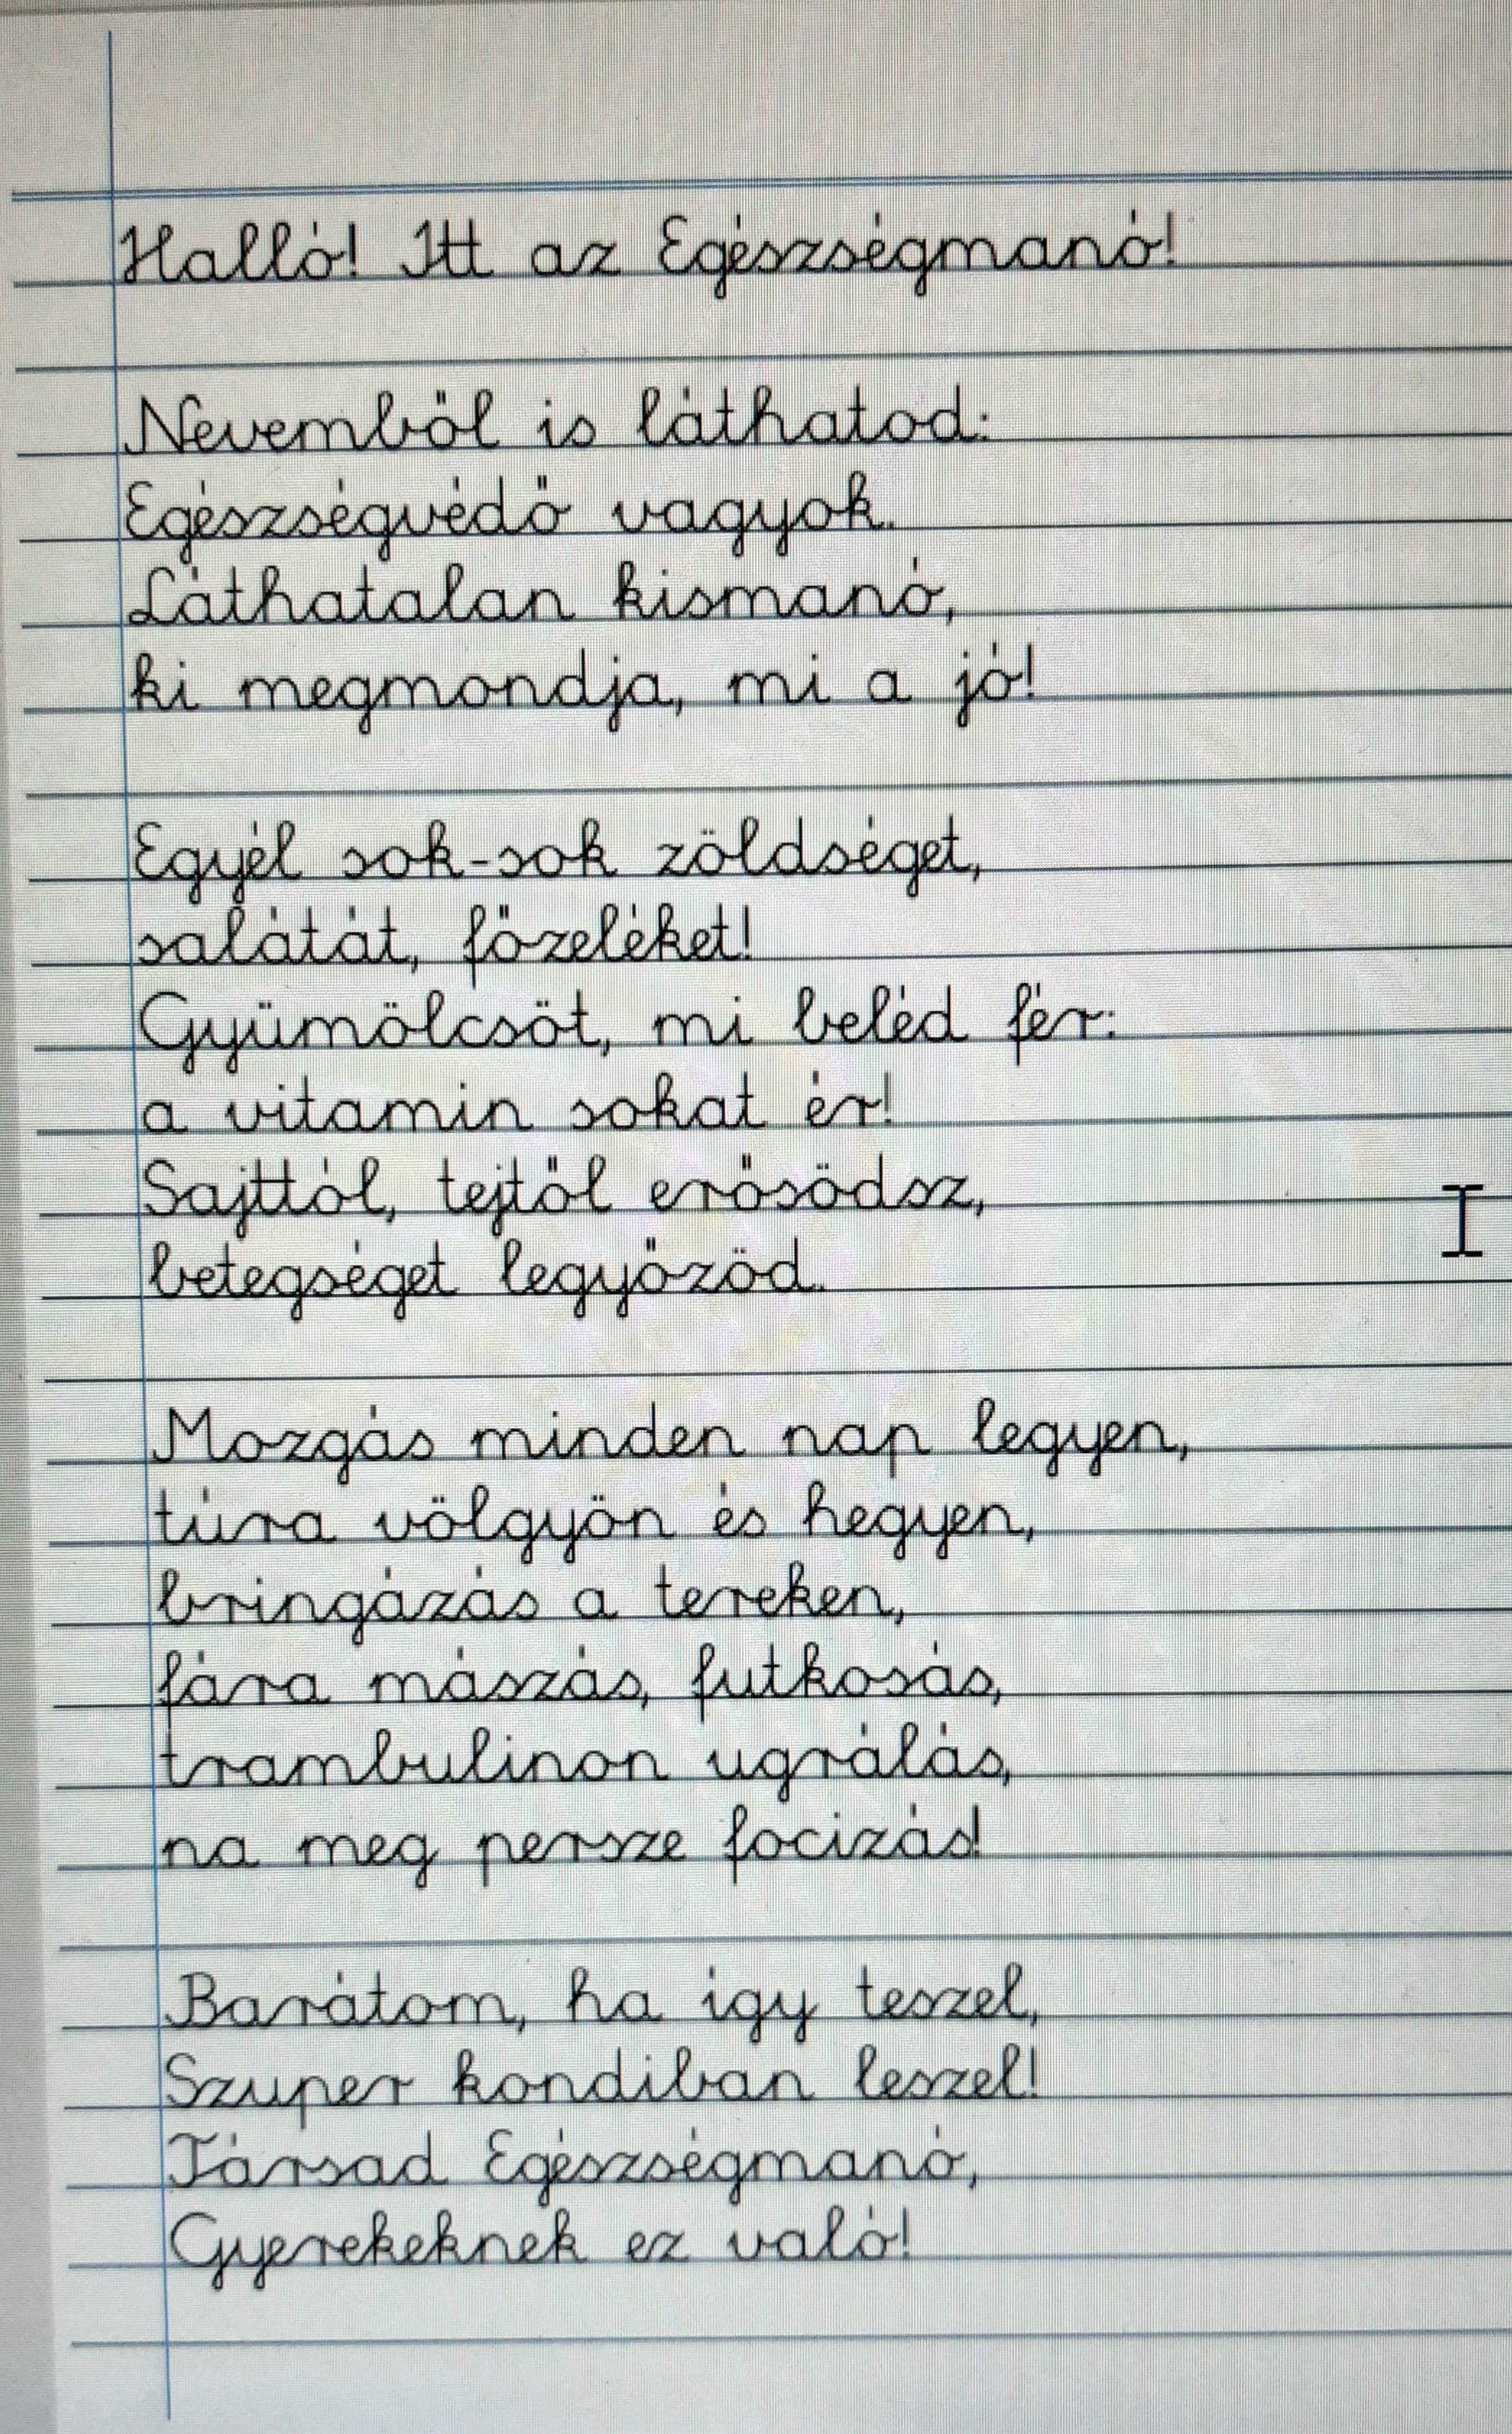 Halló! Itt az Egészségmanó!
Nevemből is láthatod:
Egészségvédő vagyok.
Láthatalan kismanó,
ki megmondja, mi a jó!
Egyél sok-sok zöldséget,
salátát, főzeléket!
Gyümölcsöt, mi beléd fér:
a vitamin sokat ér!
Sajttól, tejtől erősödsz,
betegséget legyőzöd.
Mozgás minden nap legyen,
túra völgyön és hegyen,
bringázás a tereken,
fára mászás, futkosás,
trambulinon ugrálás,
na meg persze focizás!
Barátom, ha így teszel,
Szuper kondiban leszel!
Társad Egészségmanó,
Gyerekeknek ez való!